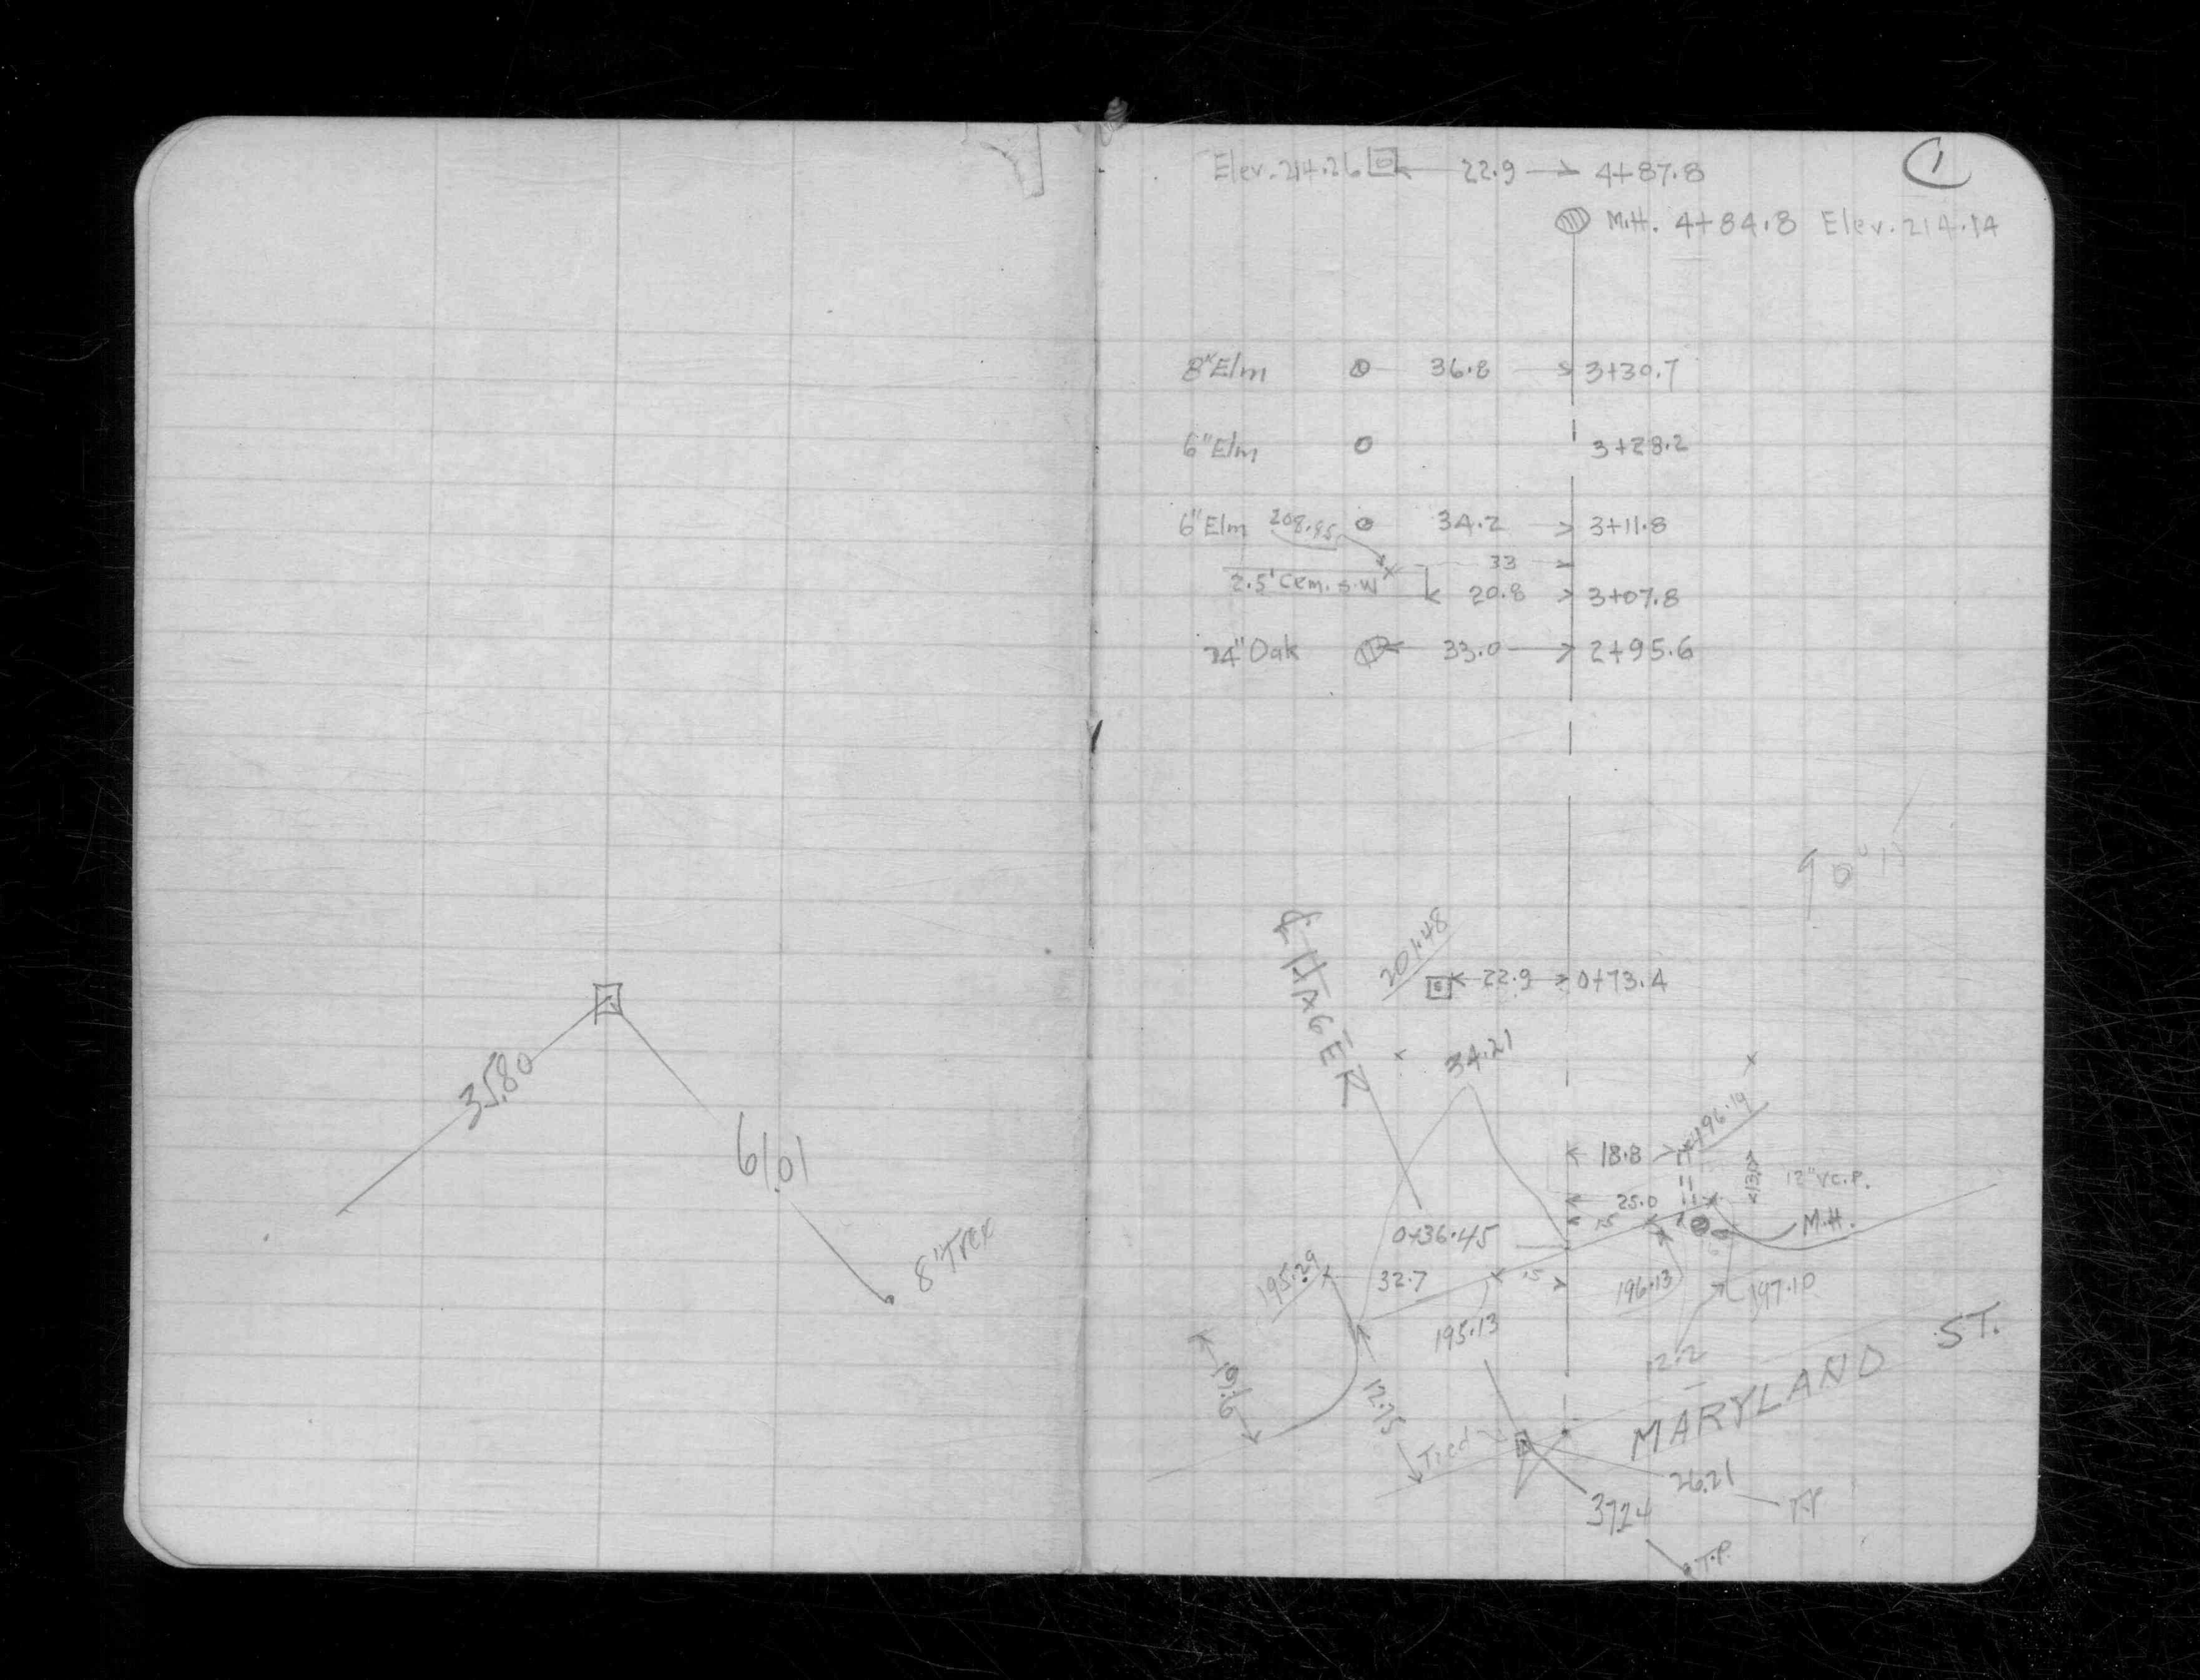 35.80
61.01
8" Tree
1
Elev. 214.26 22.9 4+87.8
M.H. 4+84.8 Elev. 214.14
8" Elm 36.8 3+30.7
6" Elm 3+28.2
6" Elm 208.85 34.2 3+11.8
33
2.5' Cem. s.w 20.8 3+07.8
24" Oak 33.0 2+95.6
℄ HAGER
201.48
22.9 0+73.4
34.21
196.19
18.8
13.0
12" V.C.P.
25.0
15
M.H.
0+36.45
195.29 32.7 15
196.13 197.10
195.13
12.2
19.6
12.75
MARYLAND ST.
Tied
26.21
37.24
T.P.